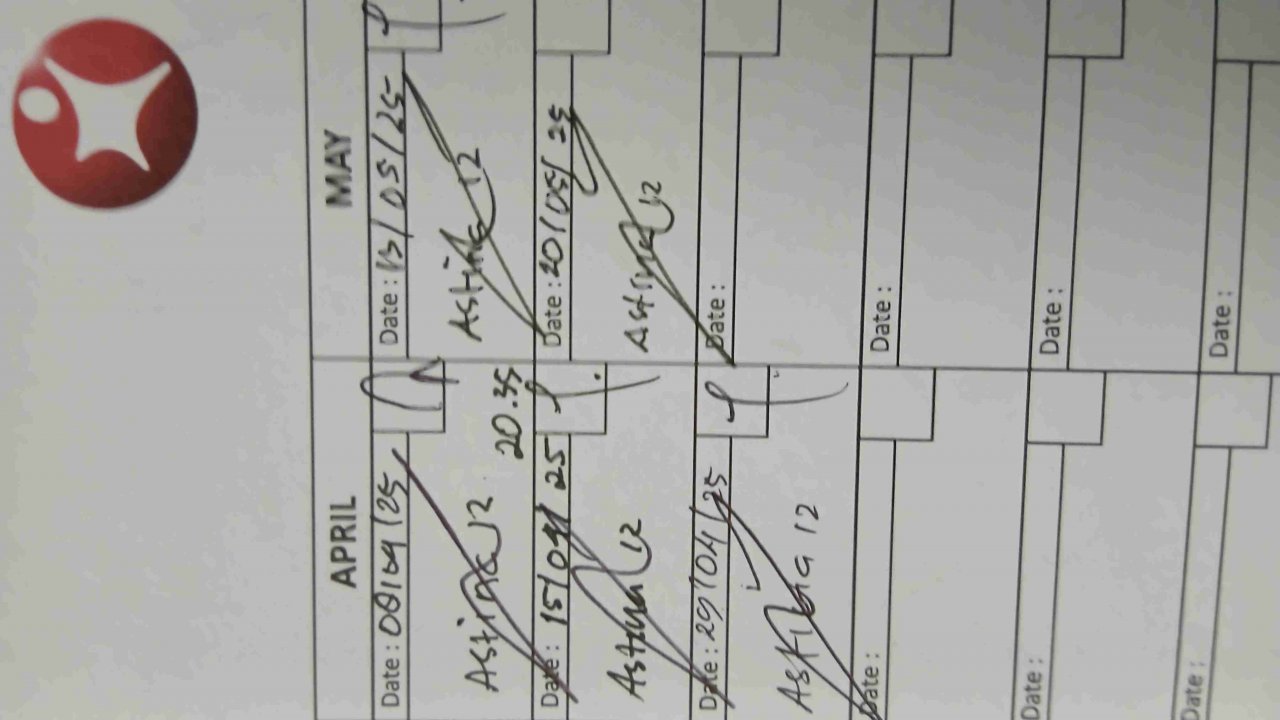 APRIL
MAY
Date : 08/04/25
Date : 13/05/25
Astina 12
20.35
Astina 12
Date : 15/04/25
Date : 20/05/25
Astina 12
Astina 12
Date : 29/04/25
Date :
Astina 12
Date :
Date :
Date :
Date :
Date :
Date :